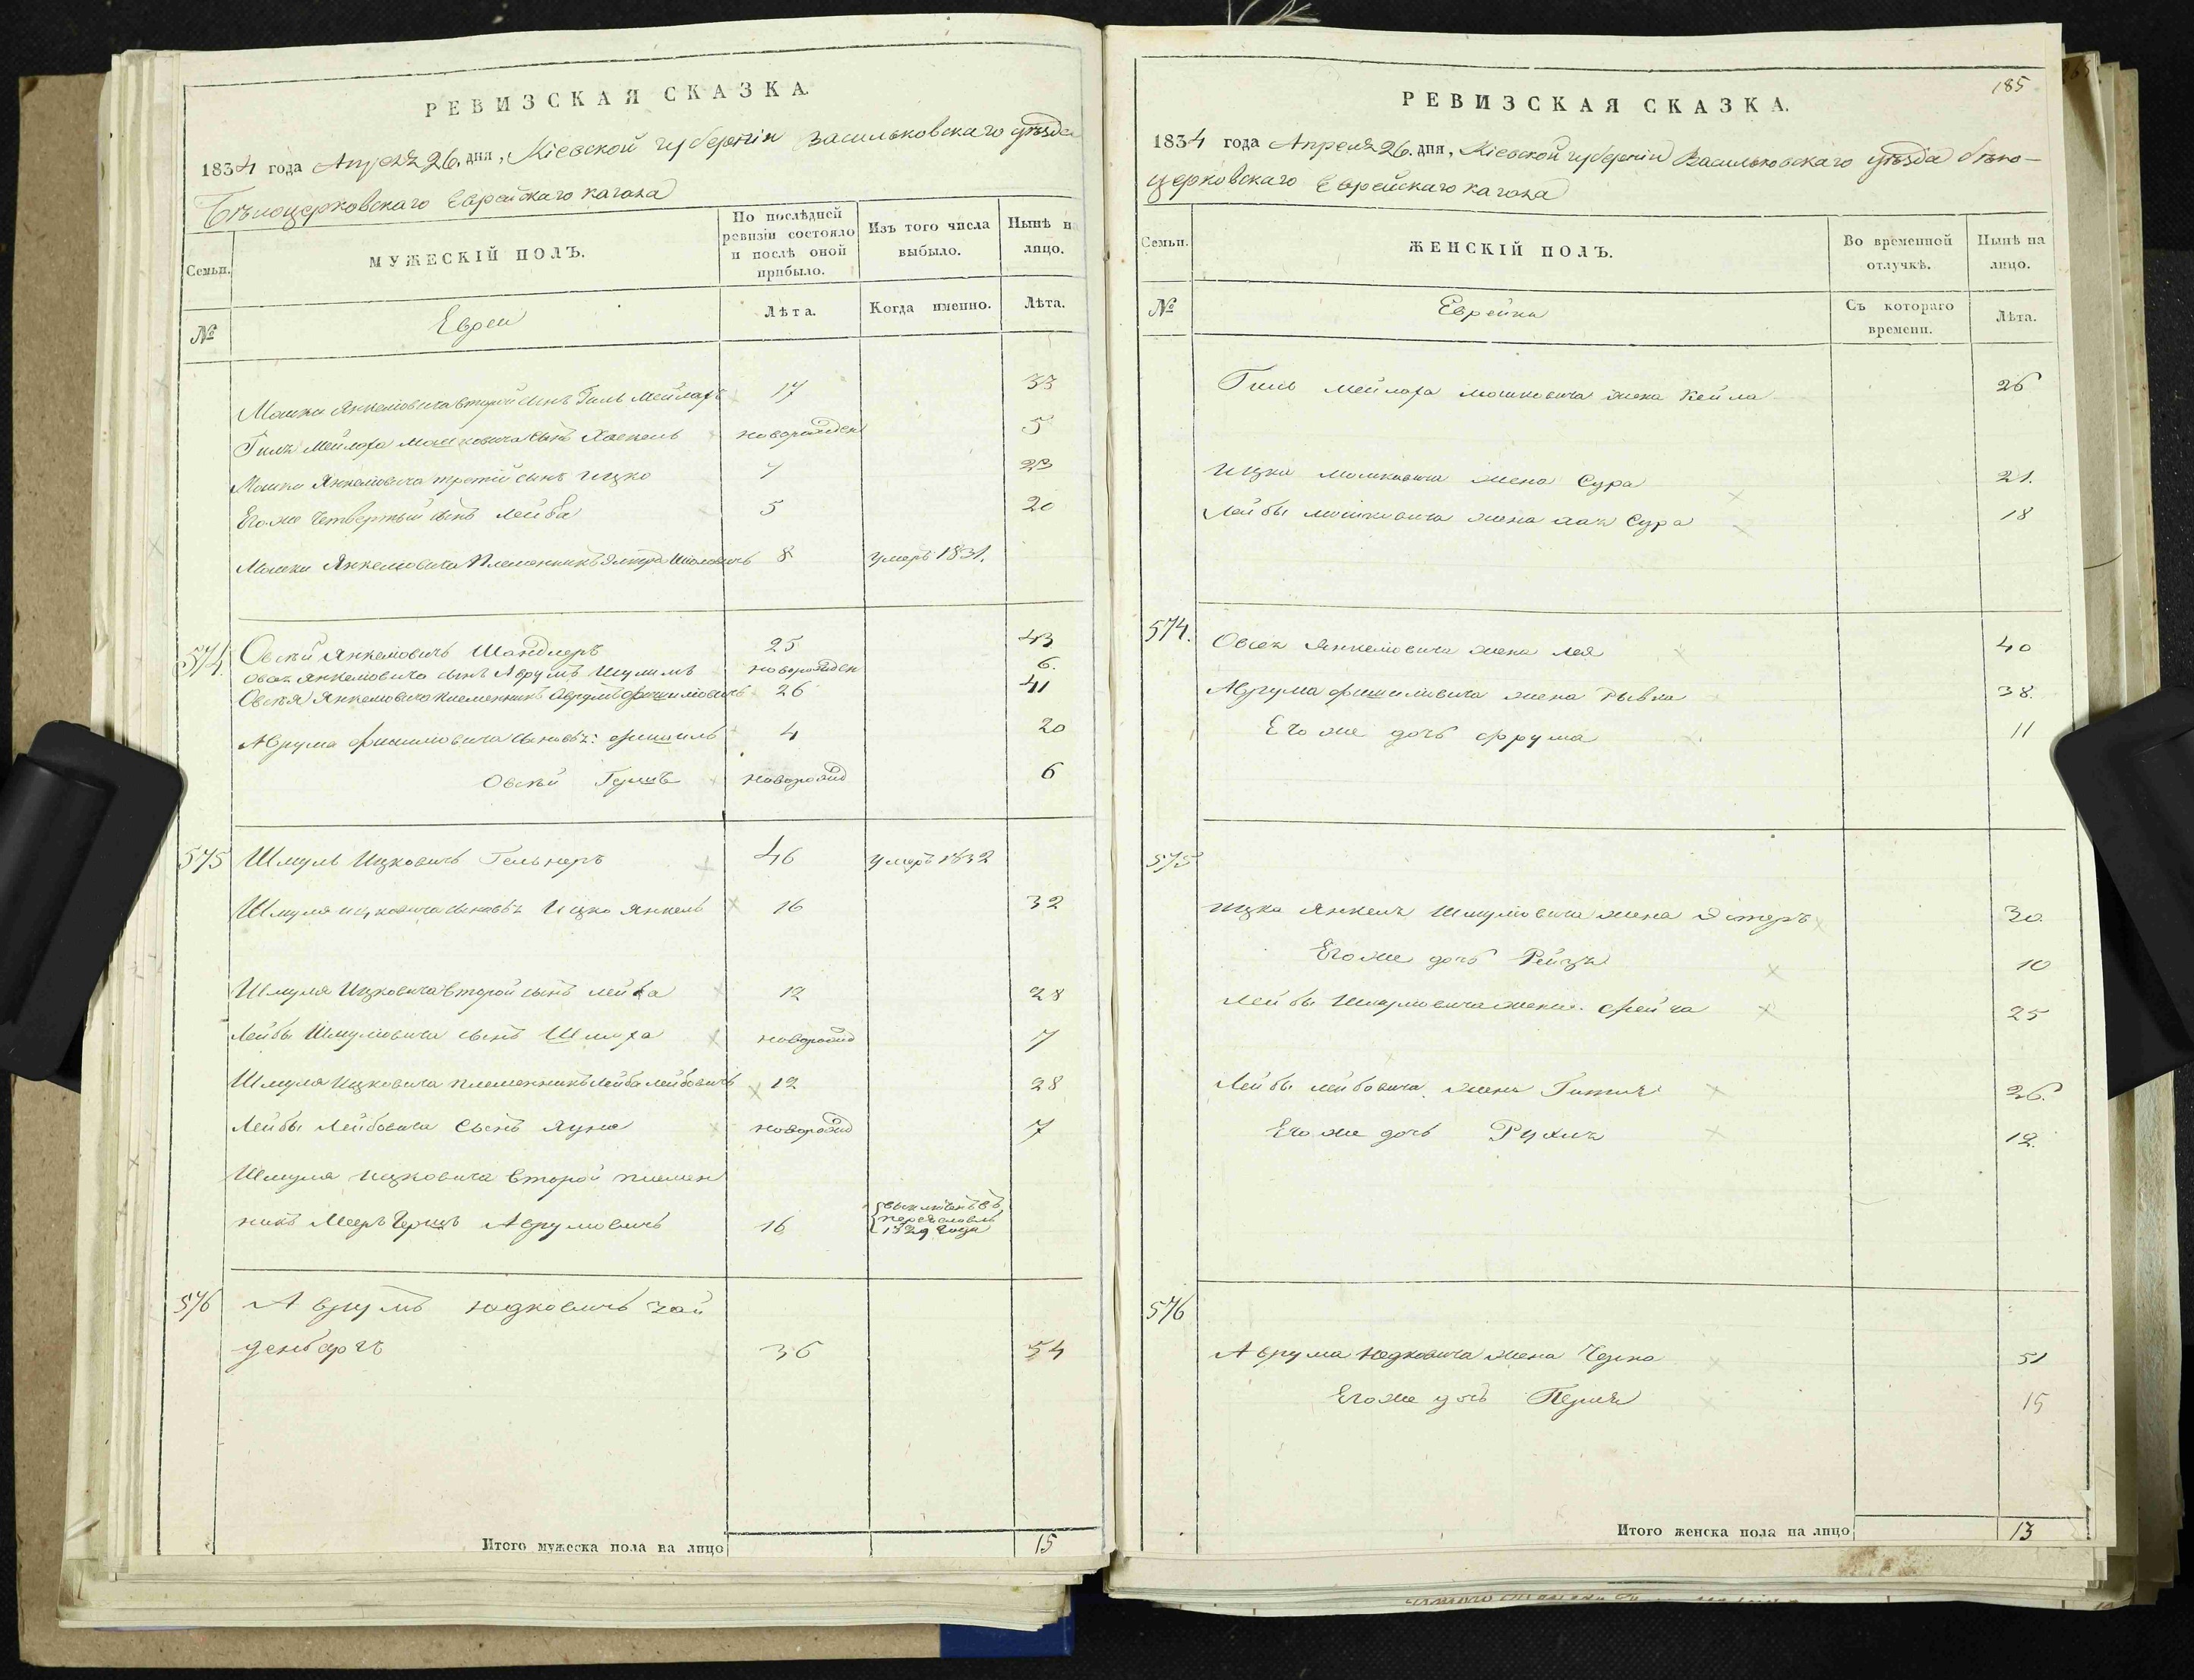 РЕВИЗСКАЯ СКАЗКА.
1834 года Апреля 26. дня, Кіевской губерніи Васильковскаго уѣзда
Бѣлоцерковскаго Еврейскаго кагала
Семьи.
МУЖЕСКІЙ ПОЛЪ.
По послѣдней ревизіи состояло и послѣ оной прибыло.
Изъ того числа выбыло.
Нынѣ на лицо.
№
Евреи
Лѣта.
Когда именно.
Лѣта.
Мошки Янкелювича второй сынъ Гиль Мейлахъ 17 33
Гиля Мейлаха Мошковича сынъ Хаскель новорожден 5
Мошки Янкелювича третій сынъ Ицко 7 23
Его же четвертый сынъ Лейба 5 20
Мошки Янкелювича племенникъ 8 умеръ 1831.
574. Овсѣй Янкеловичъ 25 43
Овсея Янкеловича сынъ Аврумъ Шулимъ новорожден 6.
Овсѣя Янкеловича племенникъ Аврумъ Фишиловичъ 26 41
Аврума Фишиловича сыновья: Фишиль 4 20
Овсѣй Гершъ новорожд 6
575 Шмуль Ицковичъ Гельнеръ 46 умеръ 1832
Шмуля Ицковича сыновья Ицко Янкель 16 32
Шмуля Ицковича второй сынъ Лейба 12 28
Лейбы Шмулювича сынъ Шлиоха новорожд 7
Шмуля Ицковича племенникъ Лейба Лейбовичъ 12 28
Лейбы Лейбовича сынъ новорожд 7
Шмуля Ицковича второй племен
никъ Мееръ Гершъ Аврумовичъ 16 1829 года
576 Аврумъ Юдковичъ Зай
денбергъ 36 54
Итого мужеска пола на лицо 15
185
РЕВИЗСКАЯ СКАЗКА.
1834 года Апреля 26. дня, Кіевской губерніи Васильковскаго уѣзда бѣло-
церковскаго Еврейскаго кагала
Семьи.
ЖЕНСКІЙ ПОЛЪ.
Во временной отлучкѣ.
Нынѣ на лицо.
№
Еврейки
Съ котораго времени.
Лѣта.
Гиля Мейлаха Мошковича жена Кейла 26
Ицки Мошковича жена Сура 21.
Лейбы Мошковича жена Сура 18
574. Овсея Янкелювича жена Лея 40
Аврума Фишиловича жена Рывка 38.
Его же дочь Фрума 11
575
Ицка Янкеля Шмулювича жена Эстеръ 30.
Его же дочь Рейзя 10
Лейбы Шмулювича жена Фейга 25
Лейбы Лейбовича жена Гитля 26.
Его же дочь Рухля 12.
576
Аврума Юдковича жена Черна 51
Его же дочь Перля 15
Итого женска пола на лицо 13